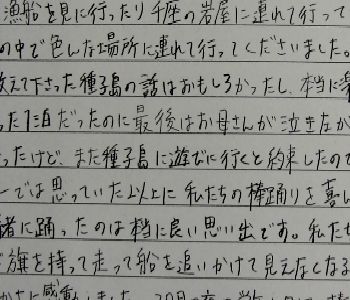 漁船を見に行ったり千座の岩屋に連れて行って
の中で色んな場所に連れて行ってくださいました。
教えて下さった種子島の話はおもしろかったし、本当に楽
った1泊だったのに最後はお母さんが泣きなが
ったけど、また種子島に遊びに行くと約束したので
ーでは思っていた以上に私たちの棒踊りを喜ん
緒に踊ったのは本当に良い思い出です。私たち
旗を持って走って船を追いかけて見えなくなる
かさに感動しました。